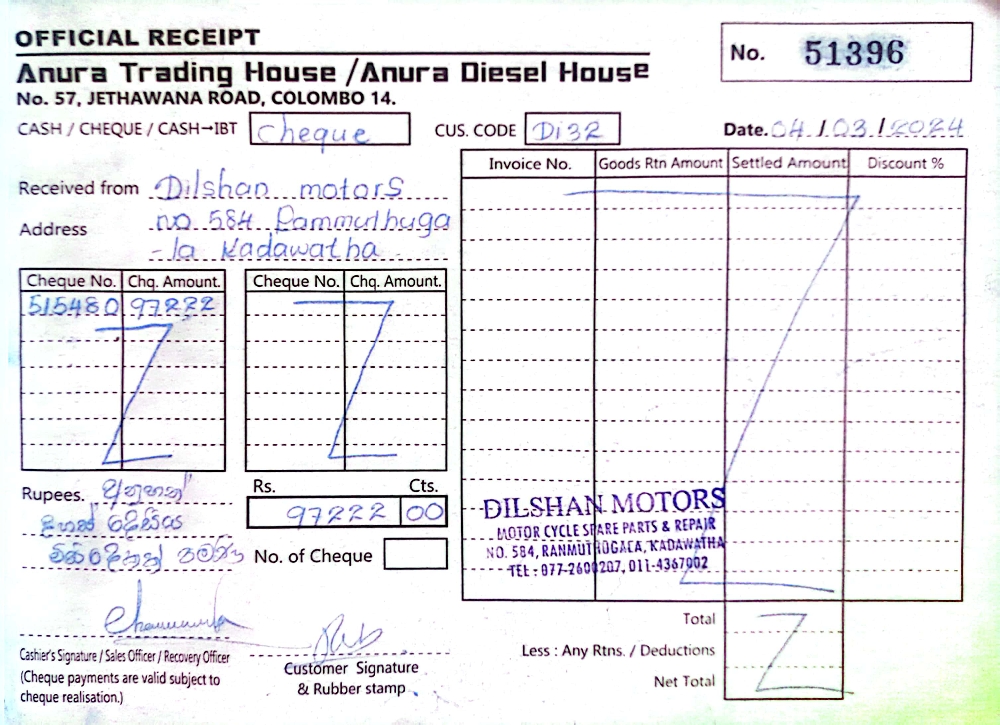 OFFICIAL RECEIPT
No. 51396
Anura Trading House /Anura Diesel House
No. 57, JETHAWANA ROAD, COLOMBO 14.
CASH / CHEQUE / CASH→IBT cheque
CUS. CODE Di32
Date. 04/03/2024
Received from Dilshan motors
Address no. 584 Rammuthuga
- la Kadawatha
Cheque No. Chq. Amount.
515480 97222
Cheque No. Chq. Amount.
Invoice No. Goods Rtn Amount Settled Amount Discount %
Rupees.
දෙසිය
Rs. Cts.
97222 00
No. of Cheque
DILSHAN MOTORS
MOTOR CYCLE SPARE PARTS & REPAIR
NO. 584, RANMUTHUGALA, KADAWATHA
TEL : 077-2600207, 011-4367002
Total
Less : Any Rtns. / Deductions
Net Total
Cashier's Signature / Sales Officer / Recovery Officer
(Cheque payments are valid subject to
cheque realisation.)
Customer Signature
& Rubber stamp